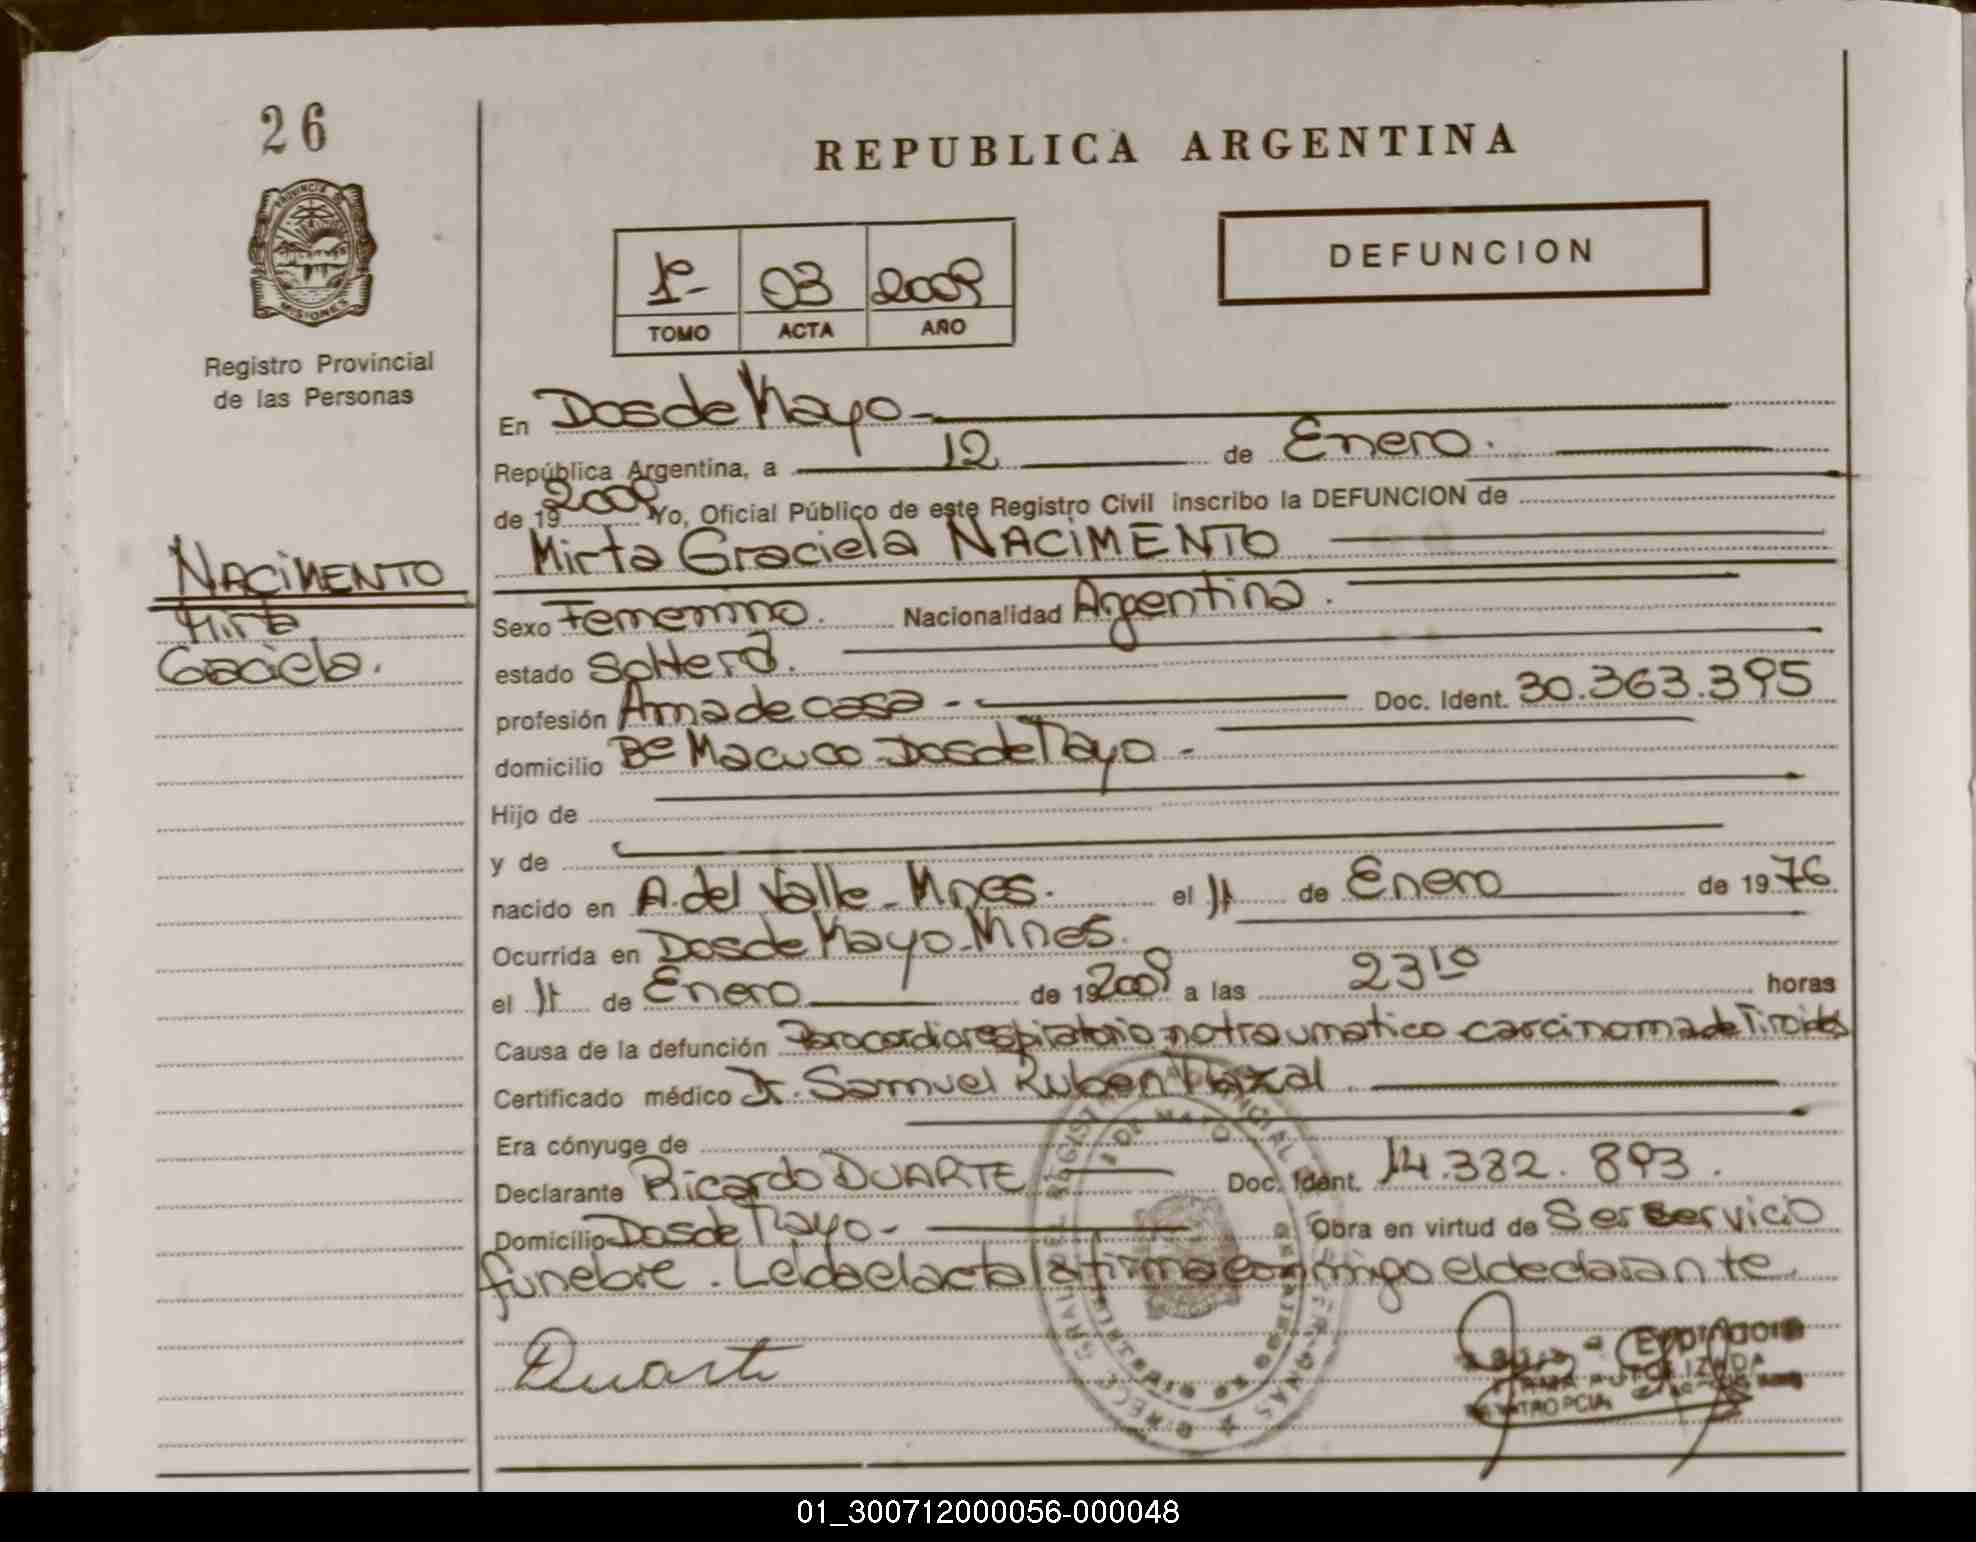 26
PROVINCIA DE
MISIONES
Registro Provincial
de las Personas
NACIMENTO
Mirta
Graciela.
REPUBLICA ARGENTINA
DEFUNCION
1º- 03 2009
TOMO ACTA AÑO
En Dos de Mayo-
República Argentina, a 12 de Enero.
de 19 2009 Yo, Oficial Público de este Registro Civil inscribo la DEFUNCION de
Mirta Graciela NACIMENTO
Sexo Femenino. Nacionalidad Argentina.
estado Soltera.
profesión Ama de casa - Doc. Ident. 30.363.395
domicilio Bº Macuco - Dos de Mayo -
Hijo de
y de
nacido en A. del Valle - Mnes. el 11 de Enero de 1976
Ocurrida en Dos de Mayo - Mnes.
el 11 de Enero de 19 2009 a las 23 10 horas
Causa de la defunción Paro cardiorespiratorio no traumatico - carcinoma de Tiroides
Certificado médico Dr. Samuel Ruben
Era cónyuge de
Declarante Ricardo DUARTE Doc. Ident. 14.382.893.
Domicilio Dos de Mayo - Obra en virtud de Ser servicio
funebre. Leida el acta la firma conmigo el declarante
Duarte
FIRMA AUTORIZADA
01_300712000056-000048